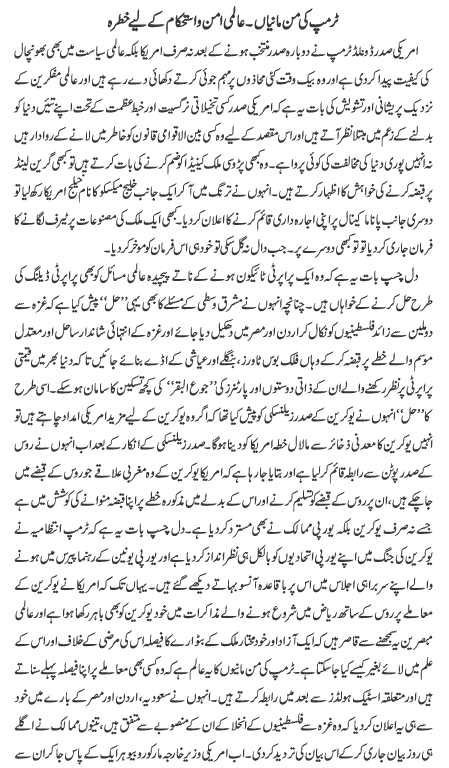 ٹرمپ کی من مانیاں۔ عالمی امن و استحکام کے لیے خطرہ
امریکی صدر ڈونلڈ ٹرمپ نے دوبارہ صدر منتخب ہونے کے بعد نہ صرف امریکا بلکہ عالمی سیاست میں بھی بھونچال
کی کیفیت پیدا کر دی ہے اور وہ بیک وقت کئی محاذوں پر مہم جوئی کرتے دکھائی دے رہے ہیں اور عالمی مفکرین کے
نزدیک پریشانی اور تشویش کی بات یہ ہے کہ امریکی صدر کسی تخیلاتی نرگسیت اور خبط عظمت کے تحت اپنے تئیں دنیا کو
بدلنے کے زعم میں مبتلا نظر آتے ہیں اور اس مقصد کے لیے وہ کسی بین الاقوامی قانون کو خاطر میں لانے کے روادار ہیں
نہ انہیں پوری دنیا کی مخالفت کی کوئی پروا ہے۔ وہ کبھی پڑوسی ملک کینیڈا کو ضم کرنے کی بات کرتے ہیں تو کبھی گرین لینڈ
پر قبضہ کرنے کی خواہش کا اظہار کرتے ہیں۔ انہوں نے ترنگ میں آ کر ایک جانب خلیج میکسکو کا نام خلیج امریکا رکھ لیا تو
دوسری جانب پاناما کینال پر اپنی اجارہ داری قائم کرنے کا اعلان کر دیا۔ کبھی ایک ملک کی مصنوعات پر ٹیرف لگانے کا
فرمان جاری کر دیا تو تو کبھی دوسرے پر۔ جب دال نہ گل سکی تو خود ہی اس فرمان کو موخر کر دیا۔
دل چسپ بات یہ ہے کہ وہ ایک پراپرٹی ٹائیکون ہونے کے ناتے پیچیدہ عالمی مسائل کو بھی پراپرٹی ڈیلنگ کی
طرح حل کرنے کے خواہاں ہیں۔ چنانچہ انہوں نے مشرق وسطی کے مسئلے کا بھی یہی ”حل“ پیش کیا ہے کہ غزہ سے
دو ملین سے زائد فلسطینیوں کو نکال کر اردن اور مصر میں دھکیل دیا جائے اور غزہ کے انتہائی شاندار ساحل اور معتدل
موسم والے خطے پر قبضہ کر کے وہاں فلک بوس ٹاورز، بنگلے اور عیاشی کے اڈے بنائے جائیں تا کہ دنیا بھر میں قیمتی
پراپرٹی پر نظر رکھنے والے ان کے ذاتی دوستوں اور پارٹنرز کی ”جوع البقر“ کی کچھ تسکین کا سامان ہو سکے۔ اسی طرح
کا ”حل“ انہوں نے یوکرین کے صدر زیلنسکی کو پیش کیا تھا کہ اگر وہ یوکرین کے لیے مزید امریکی امداد چاہتے ہیں تو
انہیں یوکرین کا معدنی ذخائر سے مالا مال خطہ امریکا کو دینا ہوگا۔ صدر زیلنسکی کے انکار کے بعد اب انہوں نے روس
کے صدر پوٹن سے رابطہ قائم کر لیا ہے اور بتایا جا رہا ہے کہ امریکا یوکرین کے وہ مغربی علاقے جو روس کے قبضے میں
جا چکے ہیں، ان پر روس کے قبضے کو تسلیم کرنے اور اس کے بدلے میں مذکورہ خطے پر اپنا قبضہ منوانے کی کوشش میں ہے
جسے نہ صرف یوکرین بلکہ یورپی ممالک نے بھی مسترد کر دیا ہے۔ دل چسپ بات یہ ہے کہ ٹرمپ انتظامیہ نے
یوکرین کی جنگ میں اپنے یورپی اتحادیوں کو بالکل ہی نظر انداز کر دیا ہے اور یورپی یونین کے رہنما پیرس میں ہونے
والے اپنے سربراہی اجلاس میں اس پر باقاعدہ آنسو بہاتے دیکھے گئے ہیں۔ یہاں تک کہ امریکا نے یوکرین کے
معاملے پر روس کے ساتھ ریاض میں شروع ہونے والے مذاکرات میں خود یوکرین کو بھی باہر رکھا ہوا ہے اور عالمی
مبصرین یہ سمجھنے سے قاصر ہیں کہ ایک آزاد اور خود مختار ملک کے بٹوارے کا فیصلہ اس کی مرضی کے خلاف اور اس کے
علم میں لائے بغیر کیسے کیا جا سکتا ہے۔ ٹرمپ کی من مانیوں کا یہ عالم ہے کہ وہ کسی بھی معاملے پر اپنا فیصلہ پہلے سناتے ہیں
اور متعلقہ اسٹیک ہولڈرز سے بعد میں رابطہ کرتے ہیں۔ انہوں نے سعودیہ، اردن اور مصر کے بارے میں خود
سے ہی یہ اعلان کر دیا کہ وہ غزہ سے فلسطینیوں کے انخلا کے ان کے منصوبے سے متفق ہیں، تینوں ممالک نے اگلے
ہی روز بیان جاری کر کے اس بیان کی تردید کر دی۔ اب امریکی وزیر خارجہ مارکو روبیو ہر ایک کے پاس جا کر ان سے